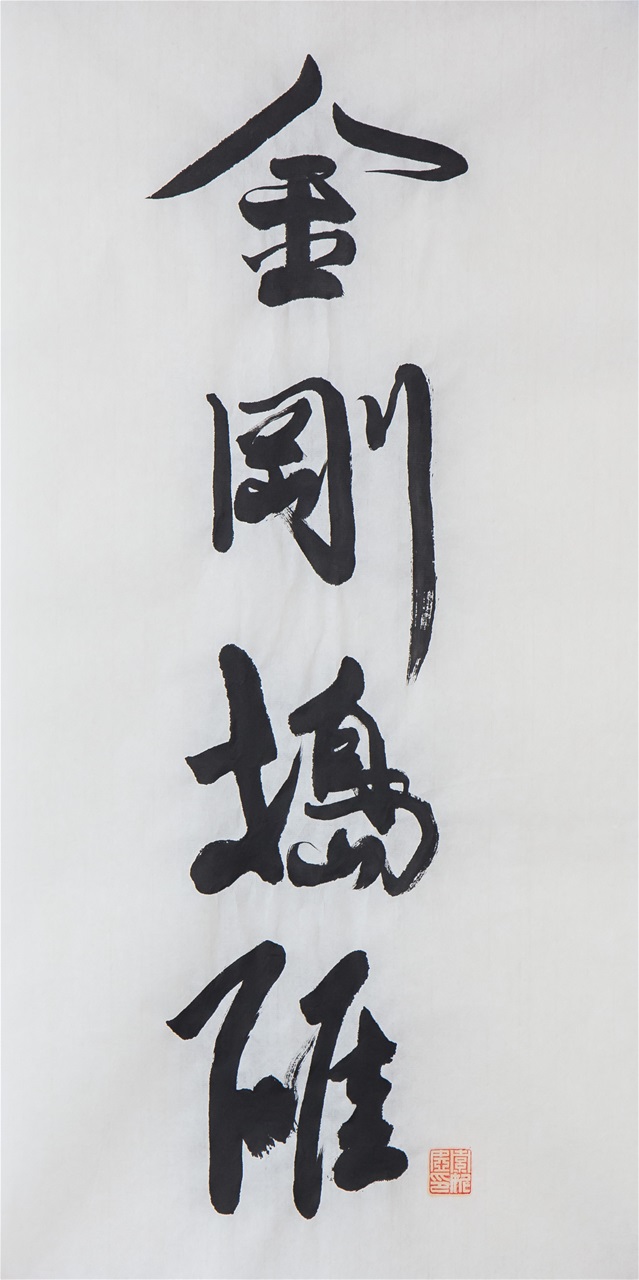 金剛搗碓